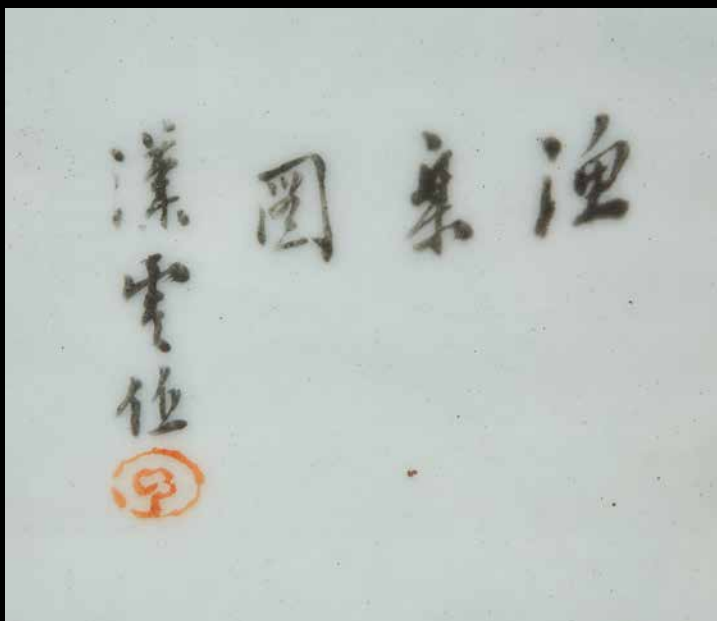 渔樂圖
漢雲作